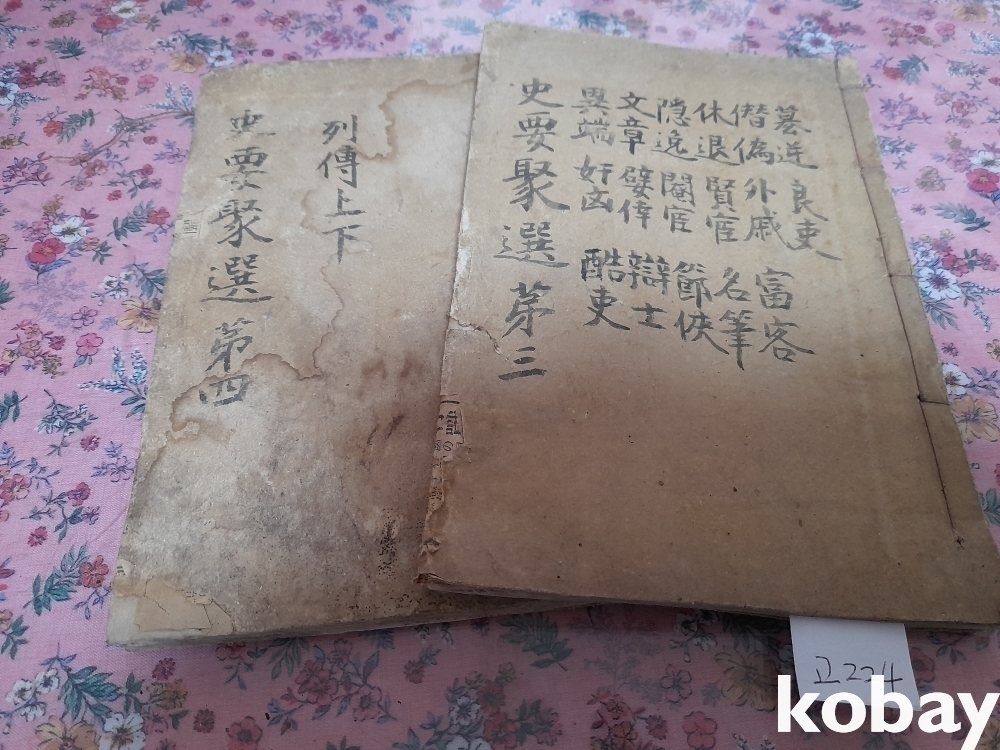 簒逆 良吏
僭偽 外戚 富客
休退 賢宦 名筆
隠逸 閹宦 節俠
文章 嬖倖 辯士
異端 奸凶 酷吏
史要聚選 苐三
列傳上下
史要聚選 第四
고224
kobay